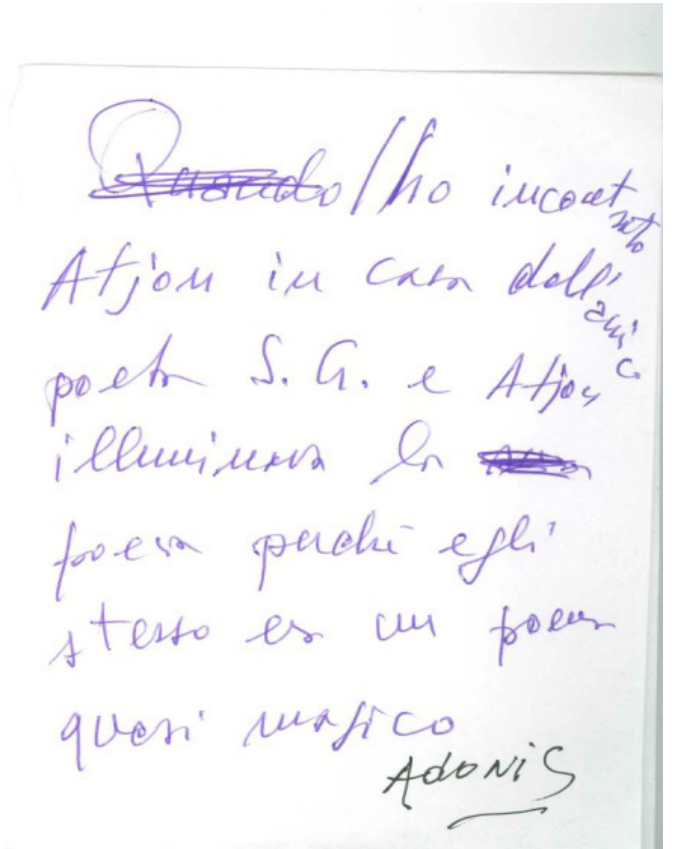 Quando / ho incontrato
Atjon in casa dell'amico
poeta S. G. e Atjon
illuminava la
poesia perché egli
stesso era un poema
quasi magico
Adonis